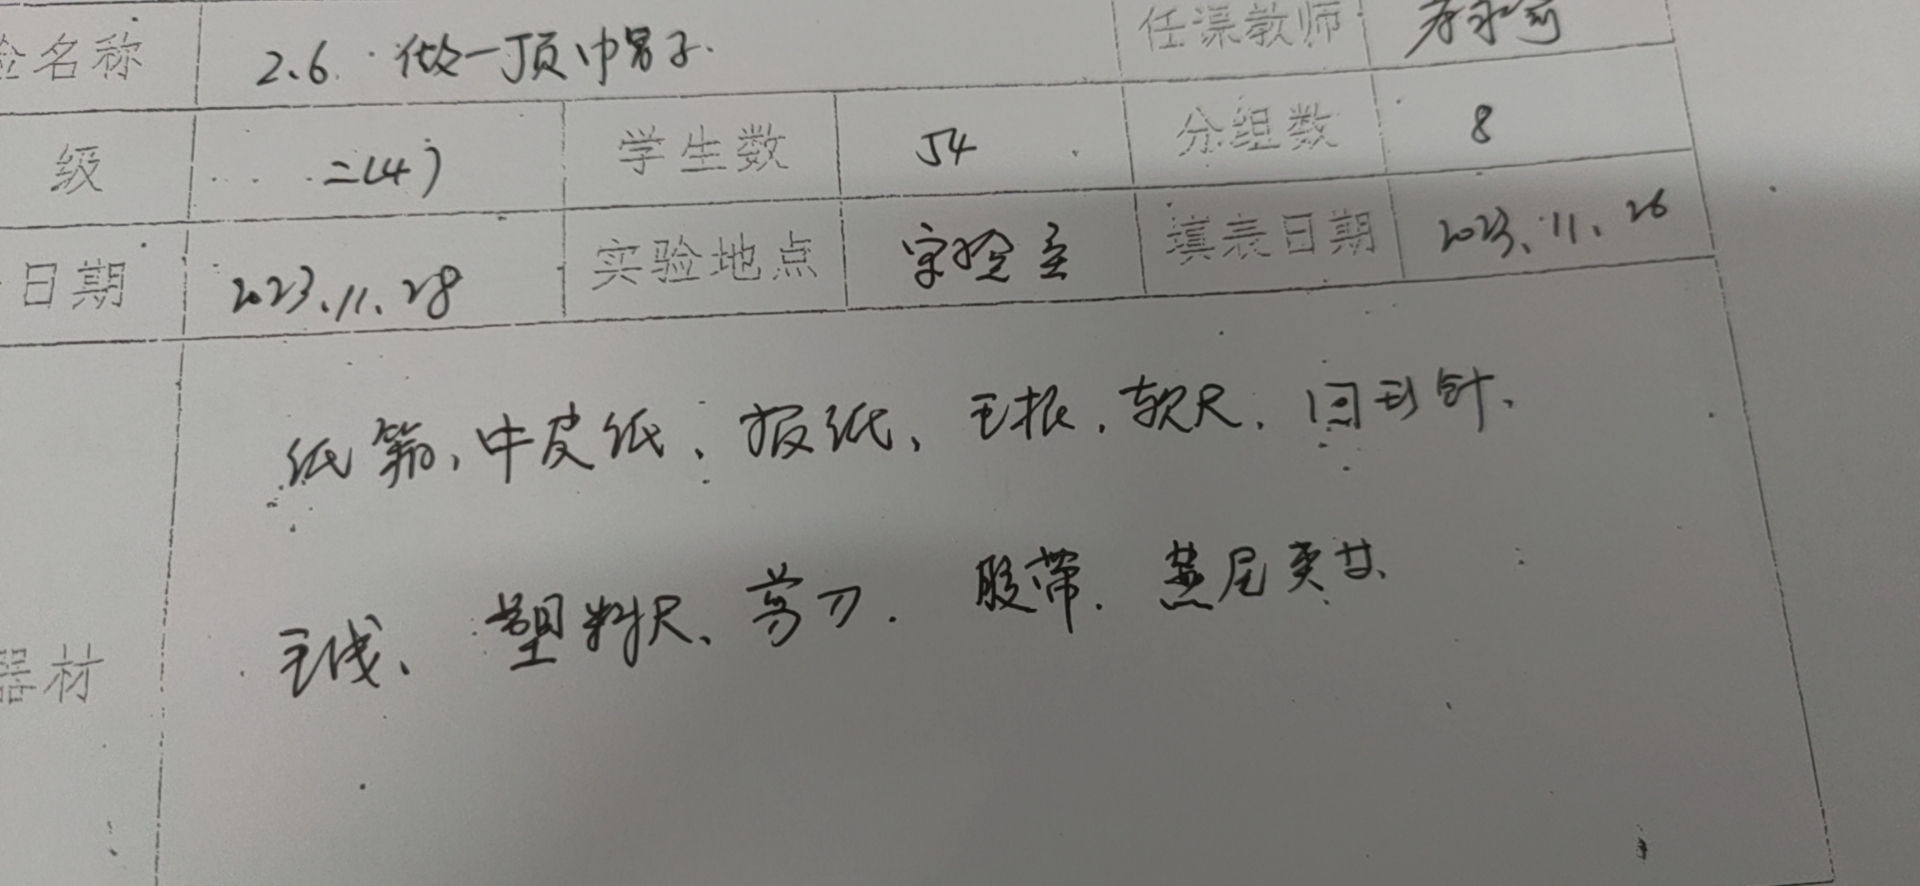 验名称 2.6 做一顶帽子. 任课教师
级 二(4) 学生数 54 分组数 8
日期 2023.11.28 实验地点 实验室 填表日期 2023.11.26
纸箱、牛皮纸、报纸、毛根、软尺、回形针、
器材 毛线、塑料尺、剪刀. 胶带. 燕尾夹等